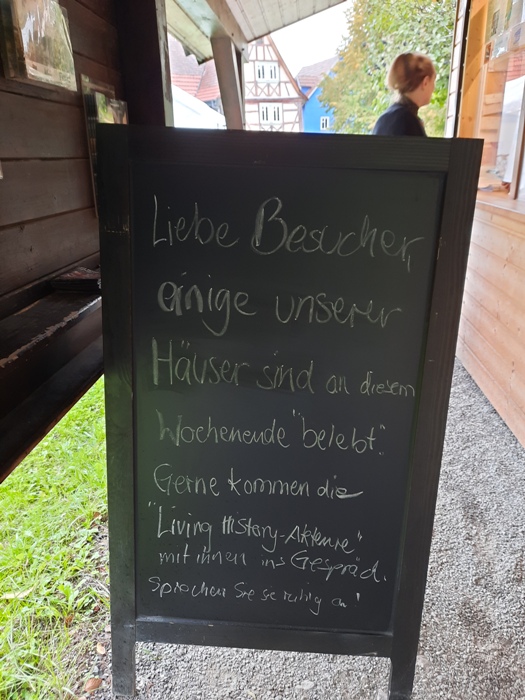 Liebe Besucher,
einige unserer
Häuser sind an diesem
Wochenende "belebt".
Gerne kommen die
"Living History-Akteure"
mit ihnen ins Gespräch.
Sprechen Sie sie ruhig an!